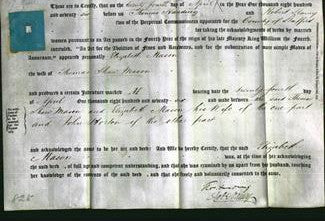 These are to Certify, that on the twenty fourth day of April in the Year One thousand eight hundred
and seventy six before us Thomas and John
two of the Perpetual Commissioners appointed for the County of Stafford
for taking the acknowledgments of deeds by married
women pursuant to an Act passed in the Fourth Year of the reign of his late Majesty King William the Fourth,
intituled, "An Act for the Abolition of Fines and Recoveries, and for the substitution of more simple Modes of
Assurance," appeared personally Elizabeth Mason
the wife of Thomas Mason
and produced a certain Indenture marked A bearing date the twenty fourth day
of April One thousand eight hundred and made between the said Thomas
Mason and Elizabeth Mason his wife of the one part
and John of the other part
and acknowledged the same to be her act and deed: And We hereby Certify, that the said Elizabeth
Mason was, at the time of her acknowledging
the said deed, of full age and competent understanding, and that she was examined by us apart from her husband, touching
her knowledge of the contents of the said deed, and that she freely and voluntarily consented to the same.